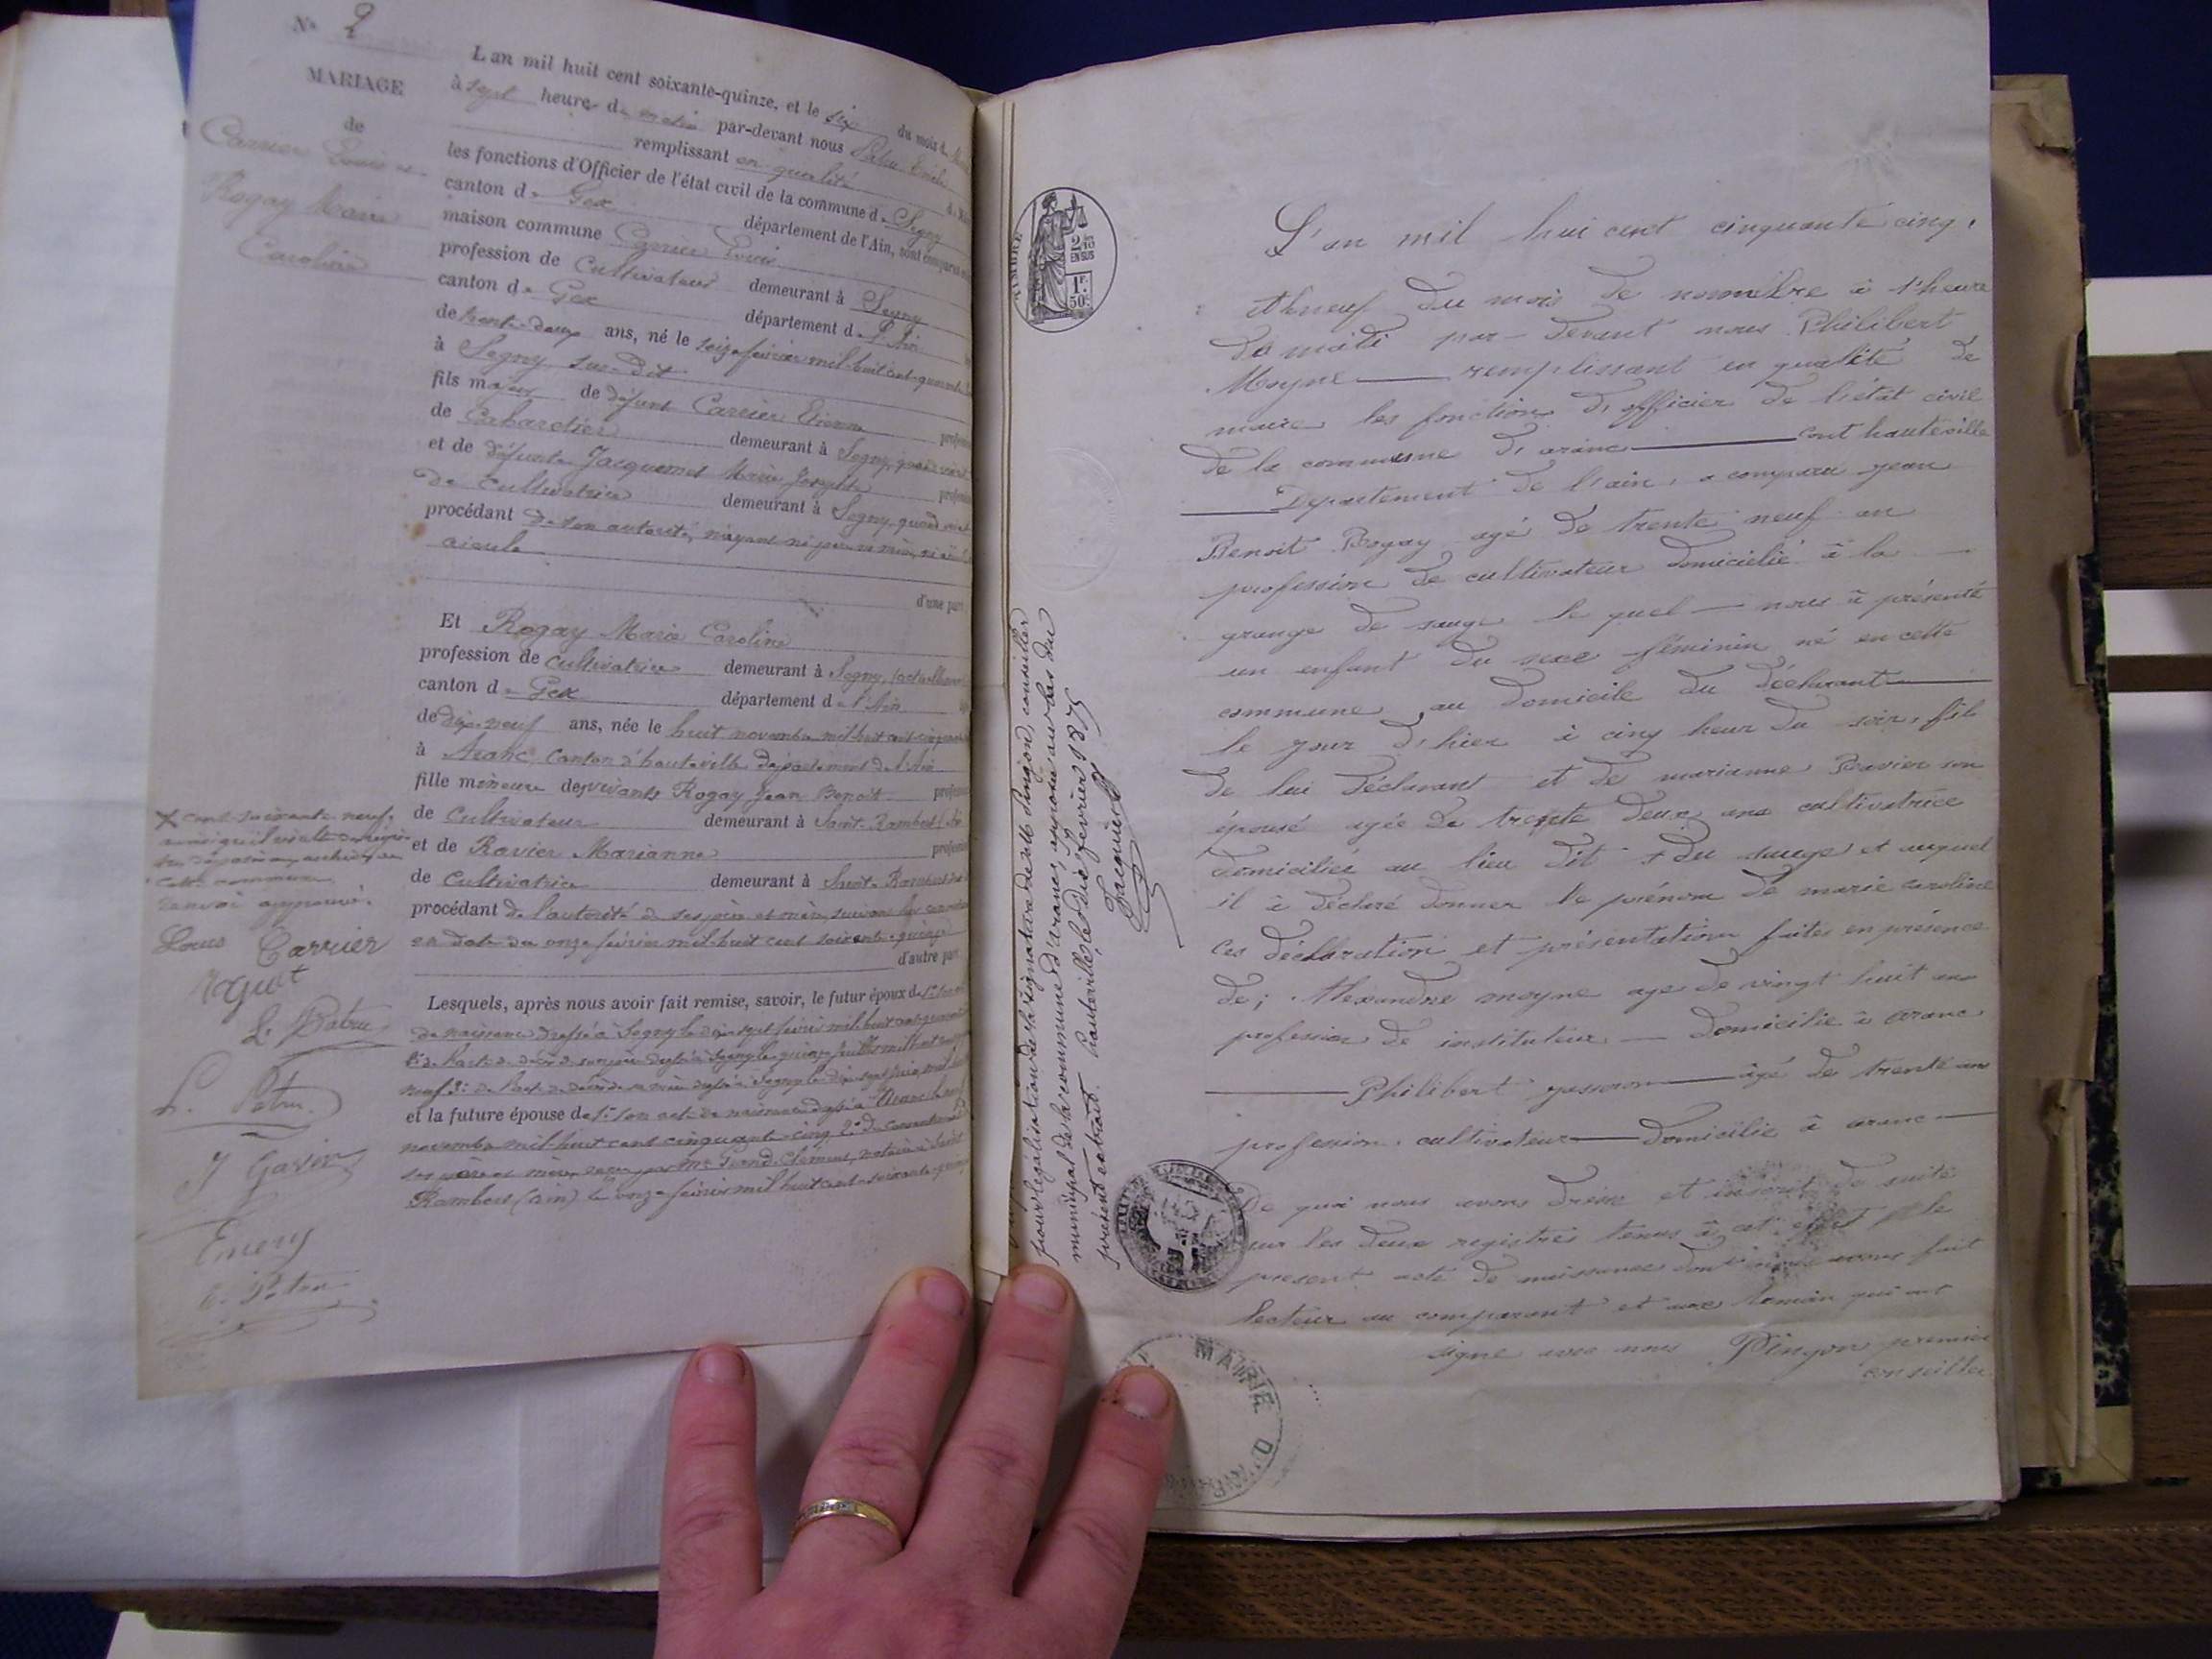 N° 2
MARIAGE
de
Carrier Louis et
Rogay Marie
Caroline
L'an mil huit cent soixante-quinze, et le six du mois de
à sept heures du matin par-devant nous
remplissant en qualité de
les fonctions d'Officier de l'état civil de la commune de Segny
canton de Gex département de l'Ain, sont comparus
maison commune Carrier Louis
profession de Cultivateur demeurant à Segny
canton de Gex département de l'Ain
de trente-deux ans, né le seize février mil-huit-cent-quarante
à Segny sus-dit
fils majeur de défunt Carrier Etienne
de Cabaretier demeurant à Segny, quand vivait
et de défunte Jacquemet Marie Josephte
de cultivatrice demeurant à Segny, quand
procédant de son autorité, n'ayant ni père ni mère, ni
aieule
d'une part
Et Rogay Marie Caroline
profession de cultivatrice demeurant à Segny, (actuellement
canton de Gex département de l'Ain
de dix-neuf ans, née le huit novembre mil huit cent cinquante
à Aranc canton d'hauteville département de l'Ain
fille mineure des vivants Rogay Jean Benoit
de Cultivateur demeurant à Saint-Rambert (Ain
et de Ravier Marianne
de cultivatrice demeurant à Saint-Rambert
procédant de l'autorité de ses père et mère, suivant leur
en date du onze février mil-huit cent soixante-quinze
d'autre part
Lesquels, après nous avoir fait remise, savoir, le futur époux de 1° son
de naissance dressé à Segny le dix-sept février mil huit cent quarante
2° de l'acte de décès de son père dressé à Segny le quinze juillet mil huit cent
neuf 3° de l'acte de décès de sa mère dressé à Segny le dix-sept juin, mil huit
et la future épouse de 1° son acte de naissance dressé à Aranc le neuf
novembre mil-huit cent cinquante-cinq 2° du consentement
ses père et mère, reçu par Me Clément, notaire à Saint
Rambert (ain) le onze février mil huit cent soixante-quinze
X cent-soixante-neuf,
ainsi qu'il résulte du
déposé aux archives de
cette commune
renvoi approuvé.
Louis Carrier
Rogay
L. Patru
L. Patru
J Gavin
Emery
TIMBRE
2/10
EN SUS
1F.
50c
L'an mil hui cent cinquante cinq,
du mois de novembre à 1'heure
de midi par-devant nous Philibert
Moyne remplissant en qualité de
maire les fonctions d'officier de l'état civil
de la commune d'aranc cont hauteville
Département de l'ain, a comparu jean
Benoit Rogay agé de trente neuf an
profession de cultivateur domicilié à la
grange de sauge le quel nous à présenté
un enfant du sexe féminin né en cette
commune, au domicile du déclarant
le jour d'hier à cinq heur du soir, fils
de lui déclarant et de marianne Ravier son
épousé agée de trente deux ans cultivatrice
domiciliée au lieu dit du sauge et auquel
il à déclaré donner le prénom de marie caroline
Ces déclaration et présentation faites en présence
de; Alexandre moyne agé de vingt huit ans
profession de instituteur domicilie à aranc
Philibert agé de trente ans
profession cultivateur domicilie à aranc
De quoi nous avons dressé et inscrit de suite
sur les deux registres tenus à cet effet le
présent acte de naissance dont nous avons fait
lecteur au comparant et aux témoin qui ont
signé avec nous Pingon premier
conseiller
pour légalisation de la signature de M. Pingon, conseiller
municipal de la commune d'aranc, apposée au bas du
présent extrait. hauteville, le dix février 1875
Jacquier
MAIRIE D'